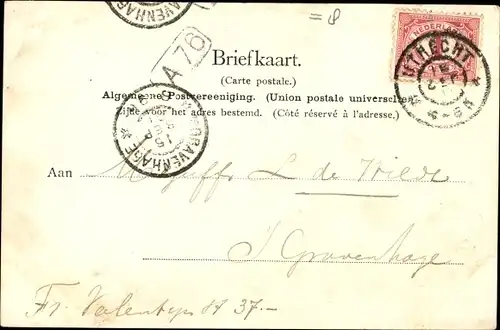 = 8
A 76
NEDERLAND
UTRECHT
Briefkaart.
(Carte postale.)
Algemeene Postvereeniging. (Union postale universelle.)
Zijde voor het adres bestemd. (Côté réservé à l'adresse.)
'S GRAVENHAGE
15
SEP
Aan Mejuffr L de Wilde
S' Gravenhage
Fr. Valentyn St 37-